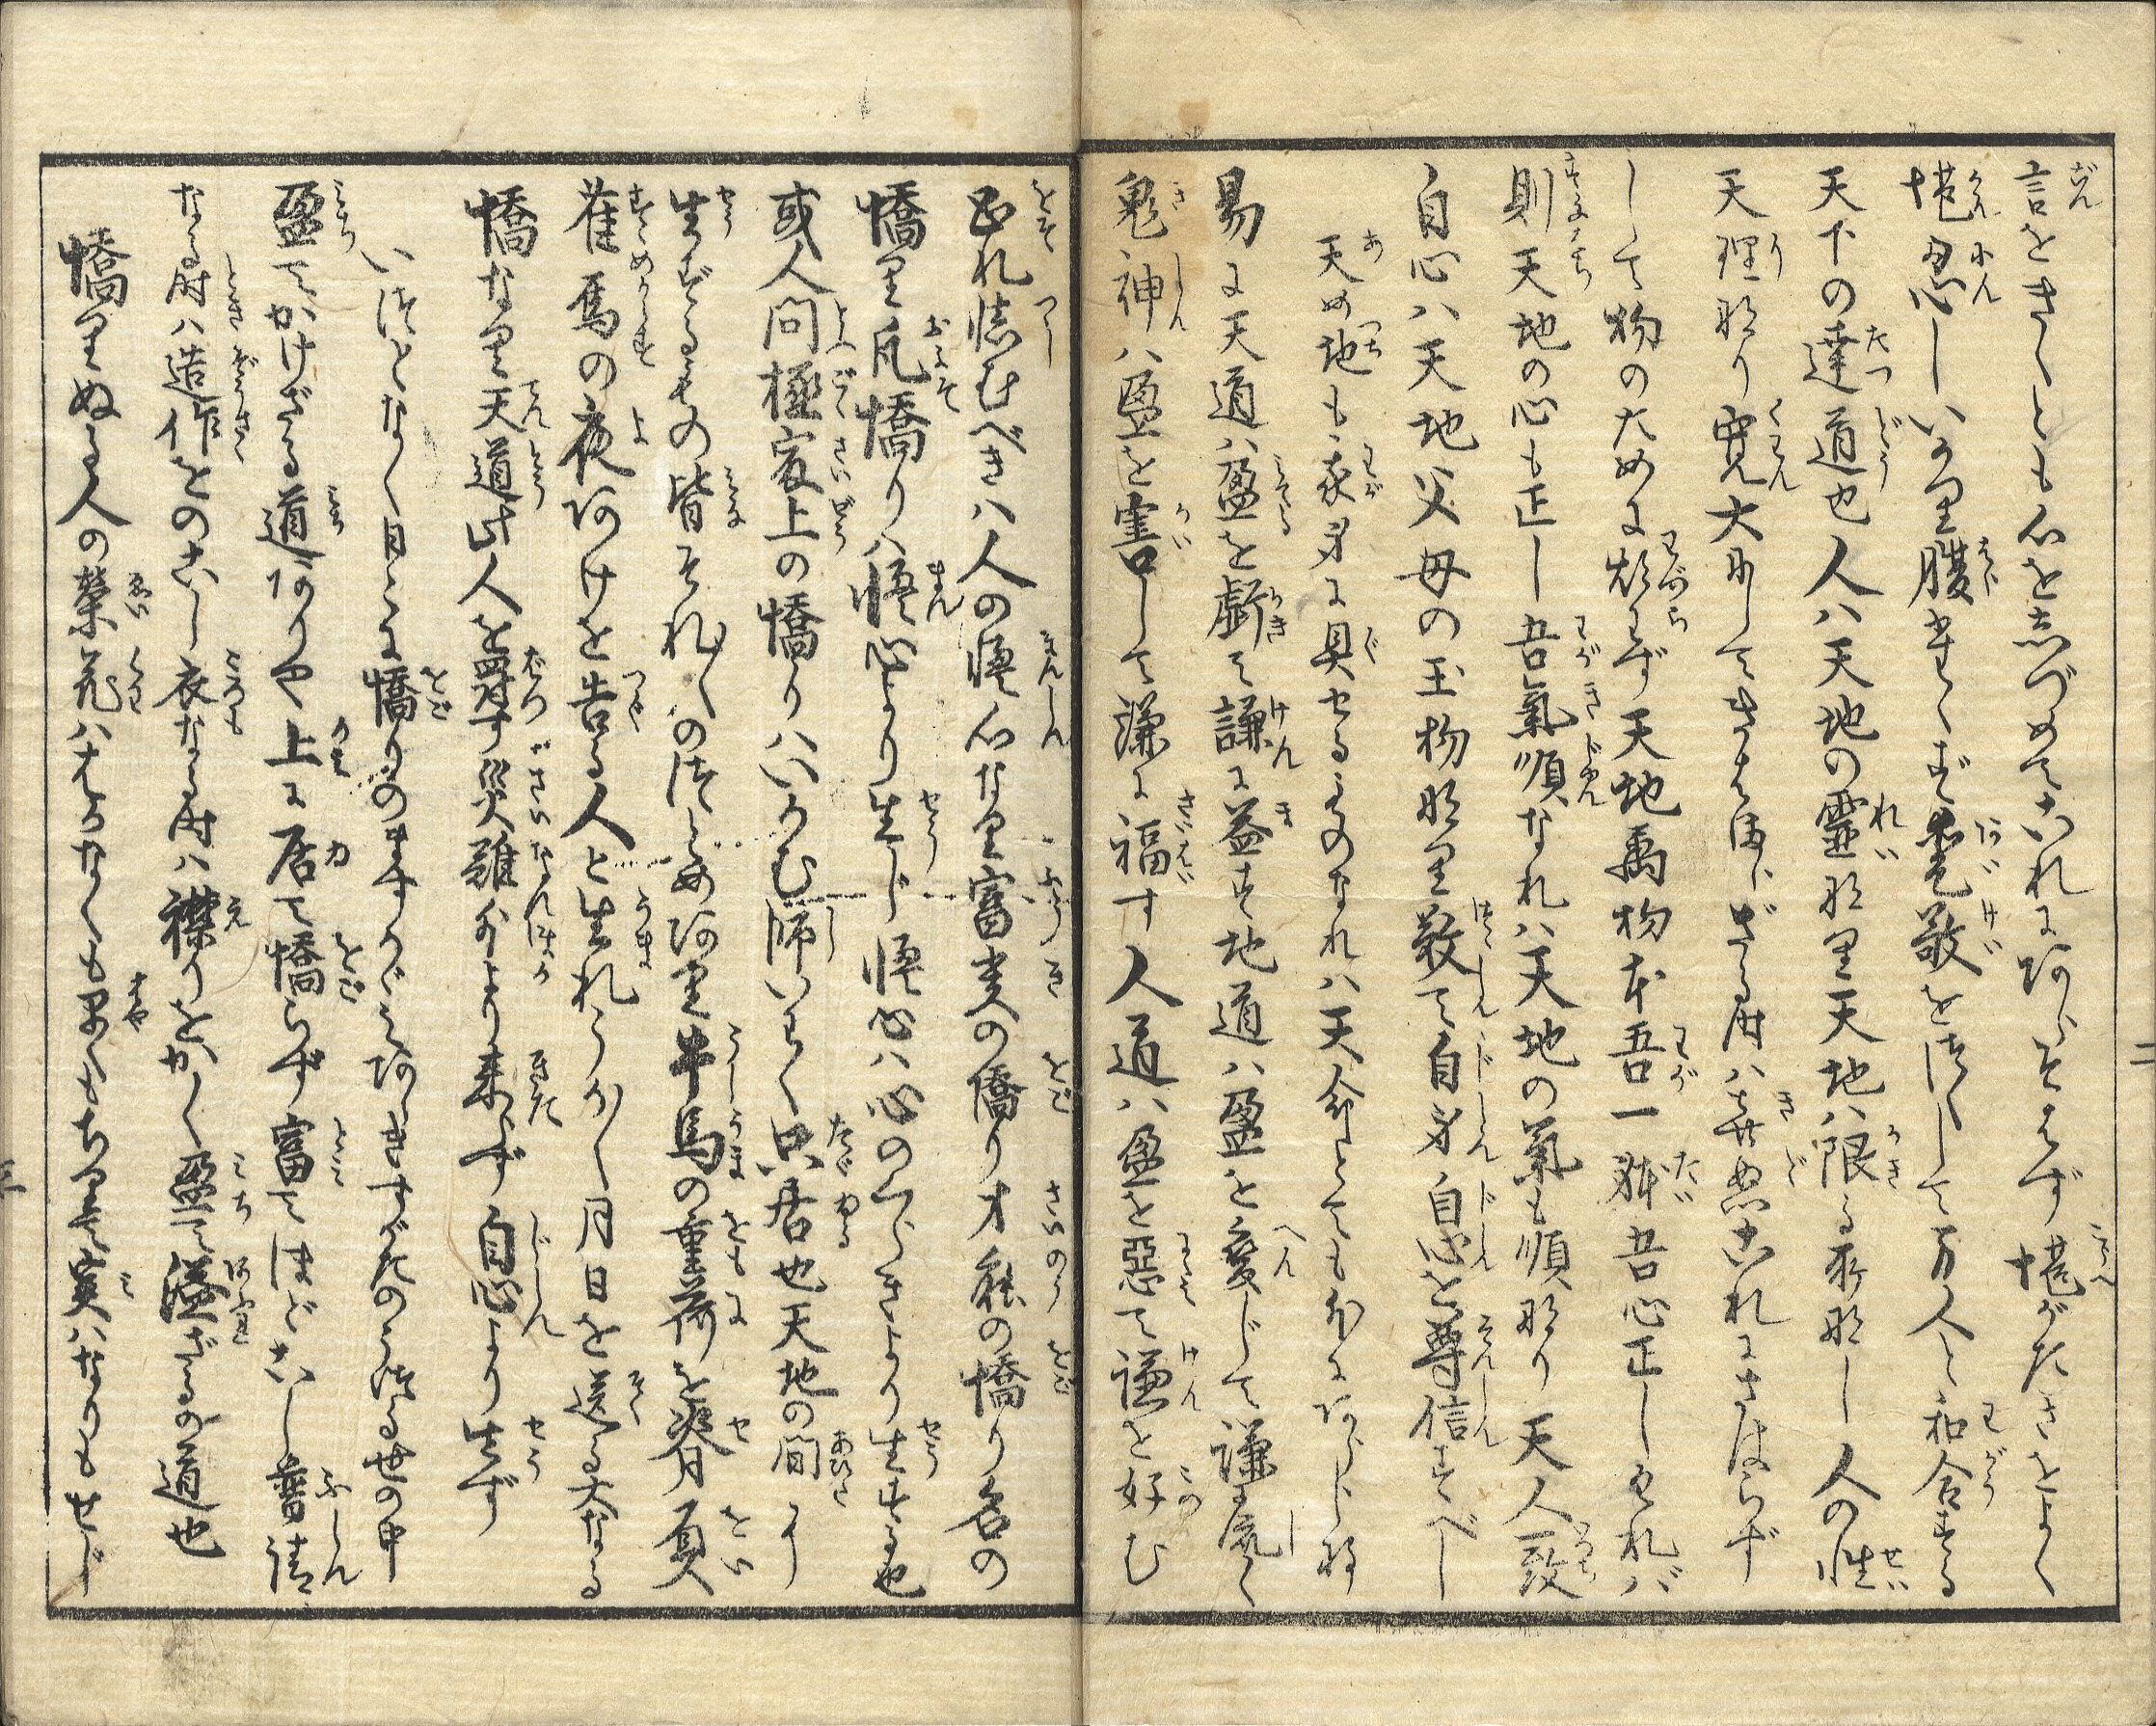 言をきくとも心をしづめてこれにあらそはず堪がたきをよく
堪忍しいかり腹たゝず愛敬をほどこして万人と和合する
天下の達道也人ハ天地の霊なり天地ハ限る所なし人の性
天理なり寛大にしてきはまらざる時ハ喜怒これにさはらず
して物のために煩はず天地萬物本吾一体吾心正しければ
則天地の心も正し吾氣順なれハ天地の氣も順なり天人一致
自心ハ天地父母の玉物なり敬て自身自心を尊信すべし
天め地も我身に具せるものなれハ天命とても外にあらじな
易に天道ハ盈を虧て謙に益す地道ハ盈を変じて謙に流く
鬼神ハ盈を害して謙に福す人道ハ盈を悪て謙を好む
恐れ慎むべきハ人の慢心なり富貴の憍り才能の憍り名の
憍り凡憍りハ慢心より生ず慢心ハ心のくらきより生ずる也
或人問極最上の憍りハいかむ師いはく只居也天地の間に
生ずるもの皆それ〳〵のつとめあり牛馬の重荷を脊負
雀烏の夜あけを告る人と生れうか〳〵月日を送る大なる
憍なり天道此人を罰す災難外より来らず自心より生ず
いつとなく日ごに憍りのますかゞみあしきすがたのうつる世の中
盈てかけざる道ありや上に居て憍らず富てほどこし普請
なる時ハ造作をのこし衣なる時ハ襟りをかく盈て溢ざるの道也
憍りぬる人の榮花ハはかなくも早くもちりて実ハなりもせじ
二
三